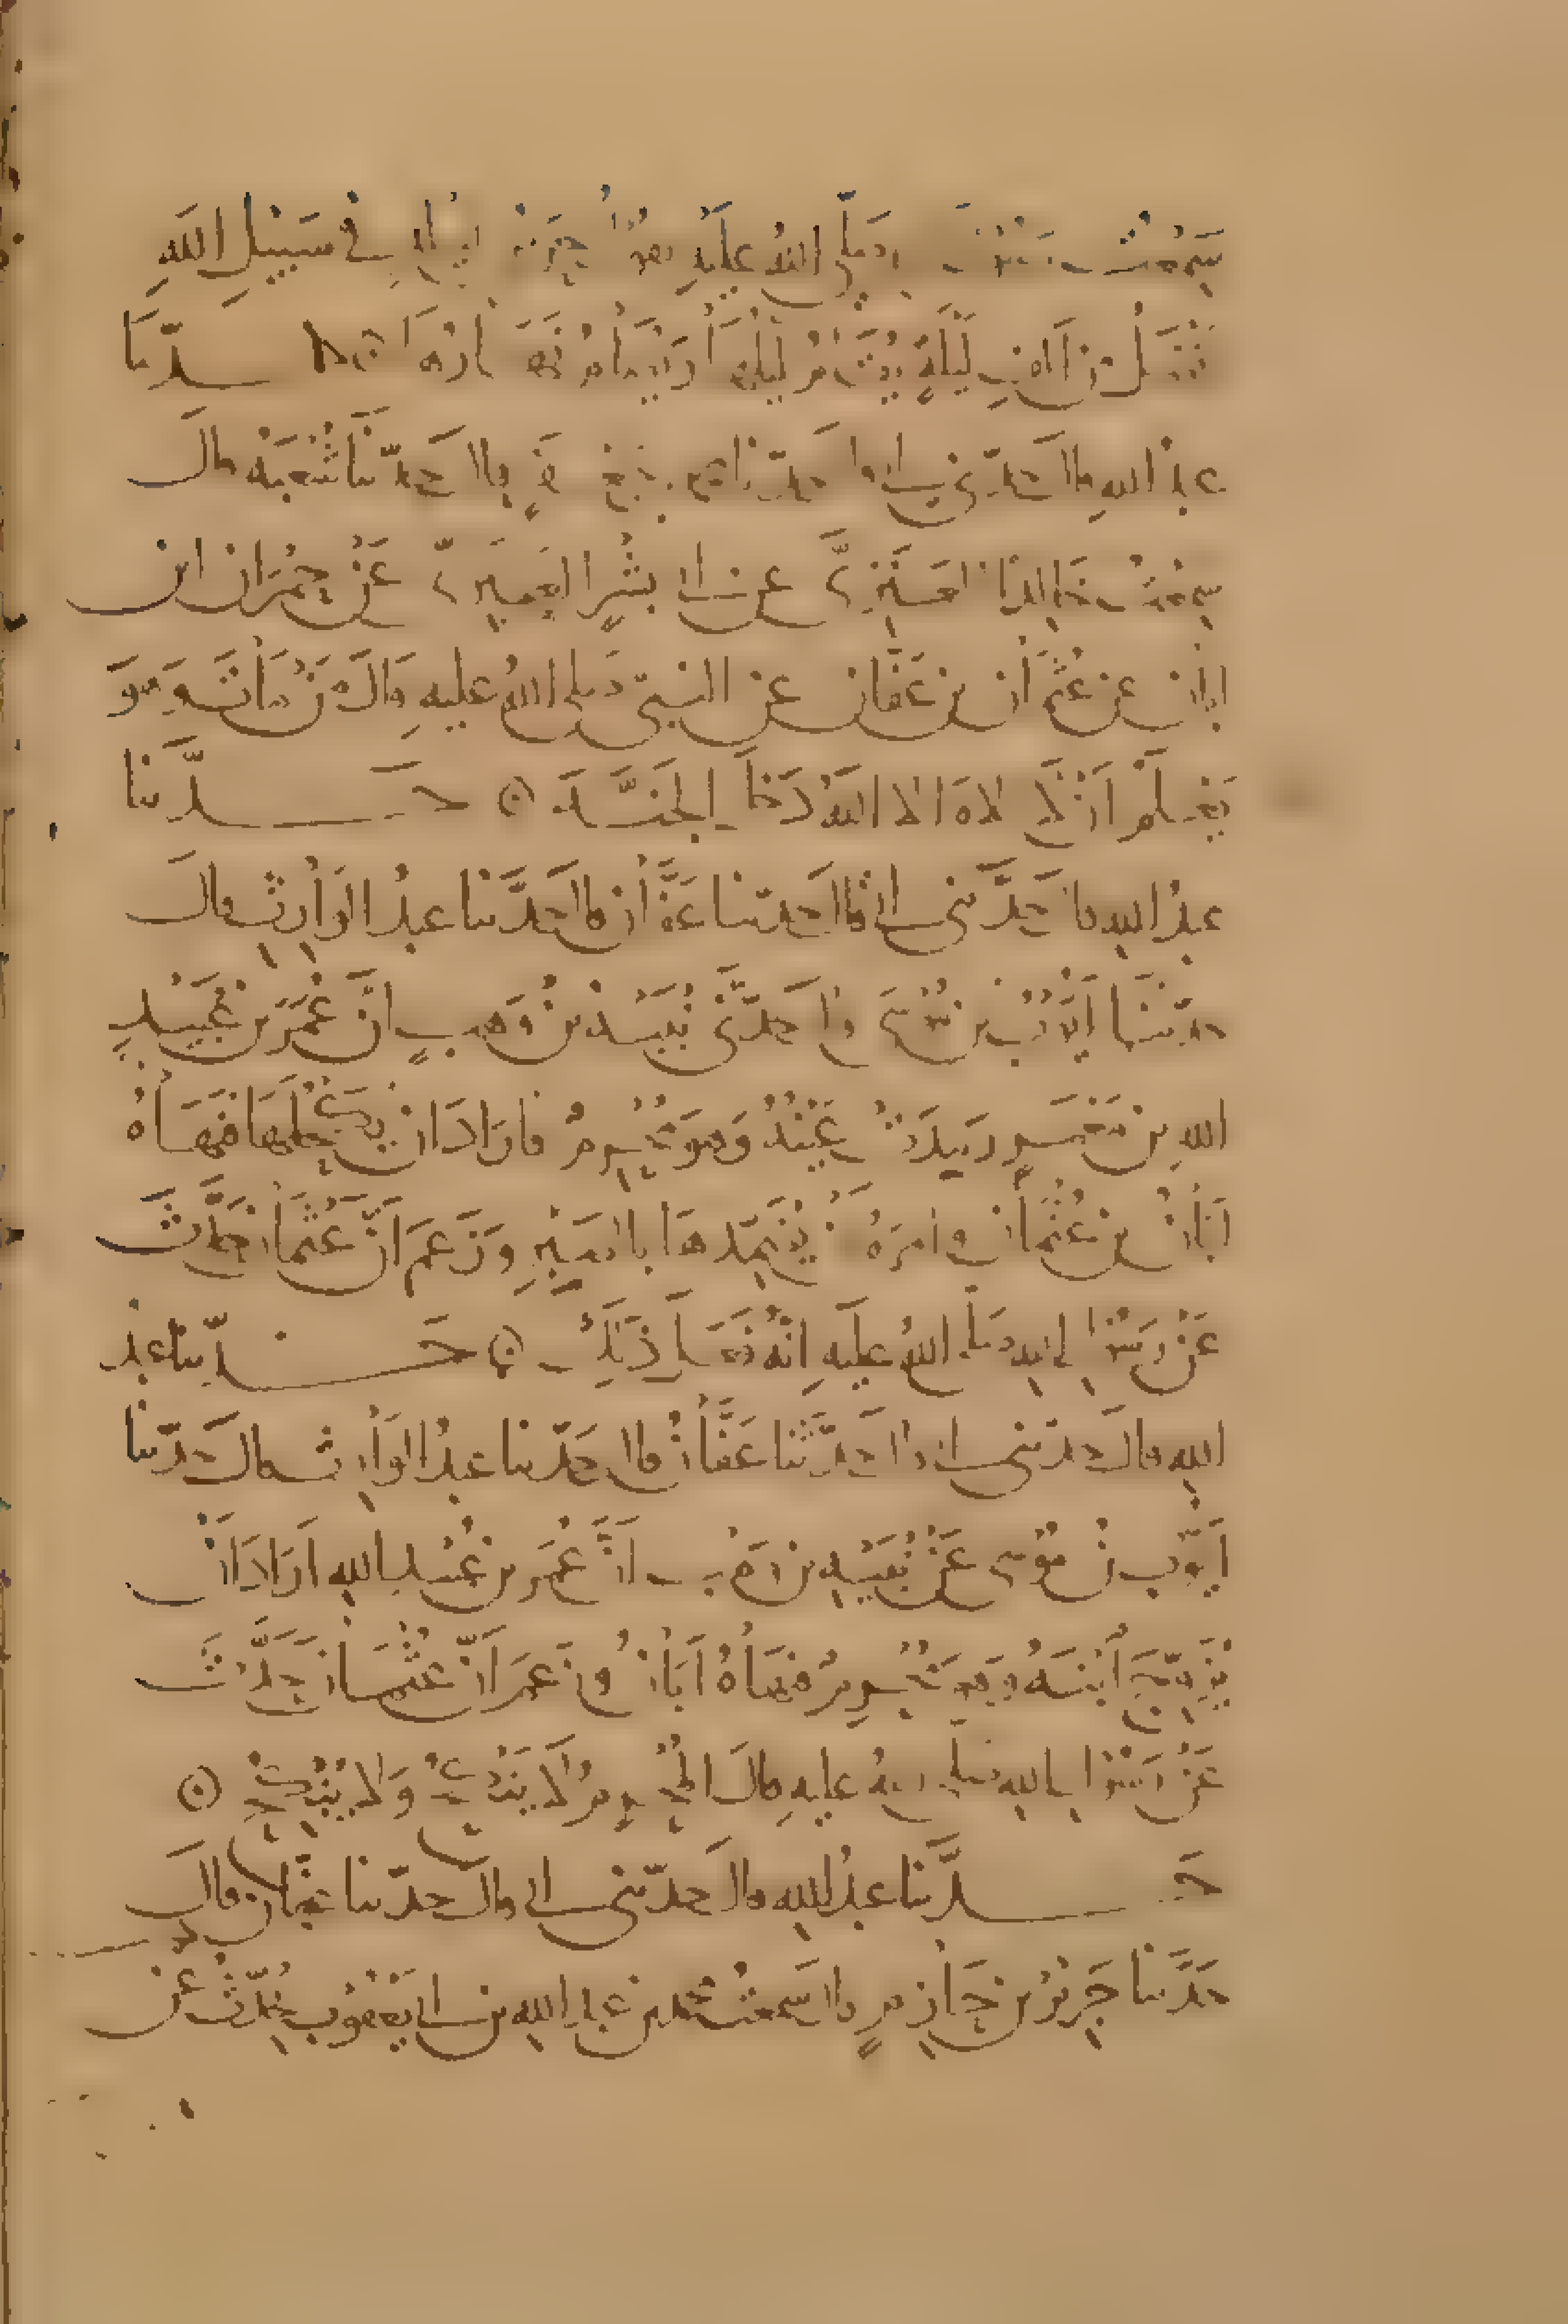 سَمِعْتُ صَلَّى اللهُ عَلَيْهِ يَقُولُ حَرَسُ لَيْلَةٍ فِي سَبِيْلِ اللهِ
أَفْضَلُ مِنْ أَلْفِ لَيْلَةٍ يُقَامُ لَيْلُهَا وَيُصَامُ نَهَارُهَا ۞ حَدَّثَنَا
عبدُ اللهِ قالَ حَدَّثني أبي قال حَدَّثنا محمد بن جعفرٍ قال حَدَّثنا شُعْبَةُ قالَ
سمِعْتُ خَالِدًا عن أبي بِشْرٍ العَنْبَرِيّ عَنْ حُمْرَانَ ابنِ
أبان عن عُثْمَانَ بن عَفَّان عن النبيّ صلى اللهُ عليهِ قالَ مَنْ مَاتَ وَهوَ
يَعْلَمُ أَنْ لَا إِلَهَ إلا اللهُ دَخَلَ الجَنَّةَ ۞ حَدَّثنا
عبدُ اللهِ قالَ حدَّثني أبي قال حدّثنا عَفَّانُ قال حَدَّثنا عبدُ الوَارِثِ قالَ
حدّثَنَا أَيُّوبُ بن مُوسَى قال حَدَّثَني نُبَيْهُ بنُ وَهبٍ أنَّ عُمَرَ بن عُبَيْدِ
اللهِ بن مَعْمَرٍ رَمِدَتْ عَيْنُهُ وَهوَ مُحْرِمٌ فأرَادَ أنْ يُكَحِّلَهَا فَنَهَاهُ
أَبَانُ بن عُثْمَانَ وأمَرَهُ أنْ يُضَمِّدهَا بالصَّبِرِ وَزَعَمَ أنَّ عُثْمَانَ حَدَّثَ
عَنْ رَسُولِ اللهِ صلى اللهُ عليهِ أنَّهُ فَعَلَ ذَلِكَ ۞ حَدّثنا عبدُ
اللهِ قالَ حدّثني أبي قال حَدَّثَنا عَفَّانُ قال حَدّثنا عبدُ الوَارِثِ قالَ حَدّثنا
أَيّوب بنُ مُوسى عَنْ نُبَيْهِ بن وَهْبٍ أنَّ عُمَرَ بن عُبَيْدِ اللهِ أرَادَ أَنْ
يُزَوِّجَ ابْنَهُ وَهوَ مُحْرِمٌ فنهَاهُ أَبَانُ وزَعَمَ أنَّ عُثْمَانَ حَدَّثَ
عَنْ رَسُولِ اللهِ صلى اللهُ عليهِ قالَ المُحْرِمُ لَا يَنْكِحُ وَلا يُنْكِحُ ۞
حَدَّثنا عبدُ اللهِ قالَ حدّثني أبي قالَ حدّثنا عفّان قالَ
حَدَّثنا جَرِيْرُ بن حَازِمٍ قال سَمِعْتُ محمد بن عبدِ اللهِ بن أبي يَعْقُوب يُحدّثُ عَن